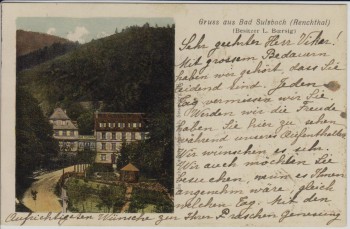 Gruss aus Bad Sulzbach (Renchthal)
(Besitzer L. Boersig)
Sehr geehrter Herr Vikar!
Mit grossem Bedauern
haben wir gehört, dass Sie
leidend sind. Jeden
Tag vermissen wir Sie.
Würden wir die Freude
haben Sie hier zu sehen
während unsres Aufenthaltes
Wir wünschen es sehr.
Wir auch möchten Sie
besuchen, wenn es Ihnen
angenehm wäre, gleich
welchen Tag. Mit den
Aufrichtigsten Wünsche zur Ihrer raschen genesung